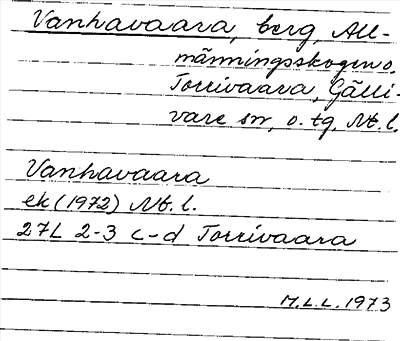 Vanhavaara, berg, All-
männingsskogen o.
Torrivaara, Gälli-
vare sn, o. tg, Nt. l.
Vanhavaara
ek (1972) Nt. l.
27L 2-3 c-d Torrivaara
M.L.L. 1973